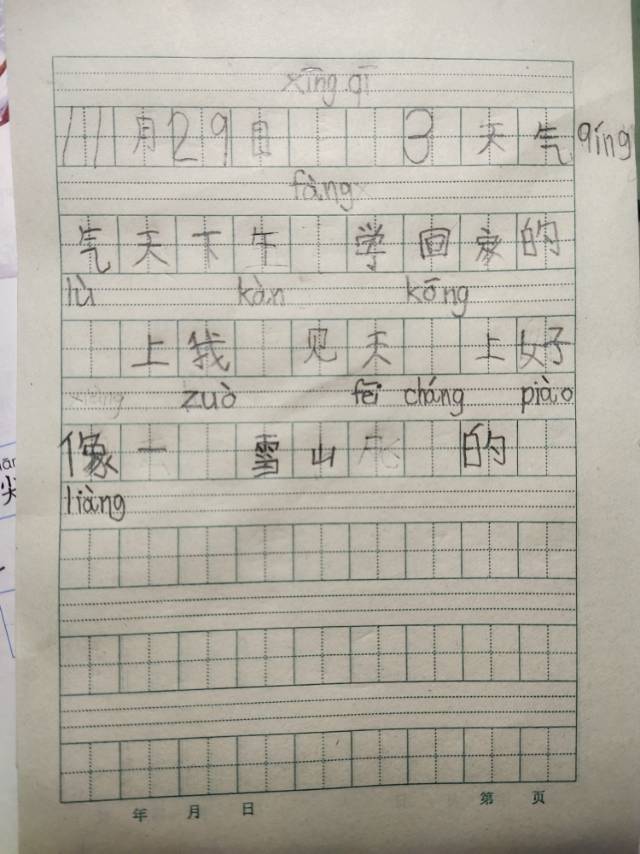 xīng qī
11月29日 3天气qíng
fàng
气天下午 学回家的
lù kàn kōng
上我 见天 上好
zuò fēi cháng piào
像一 雪山 的
liàng
年 月 日 第 页